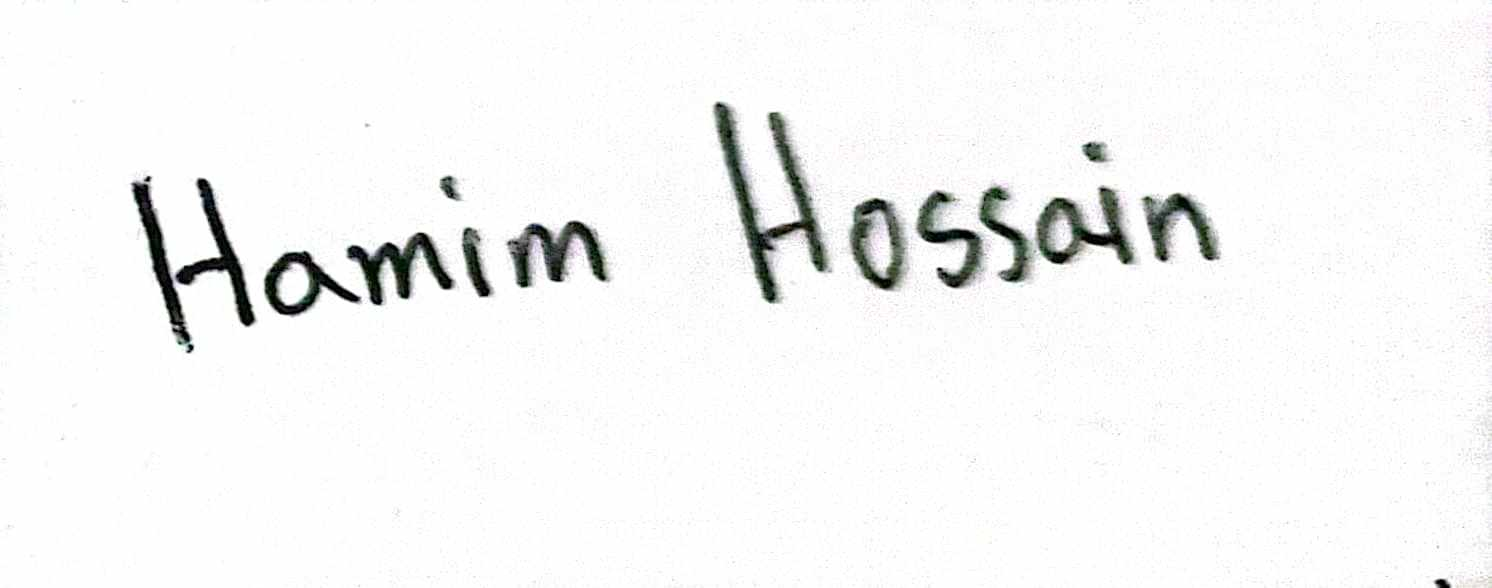 Hamim Hossain